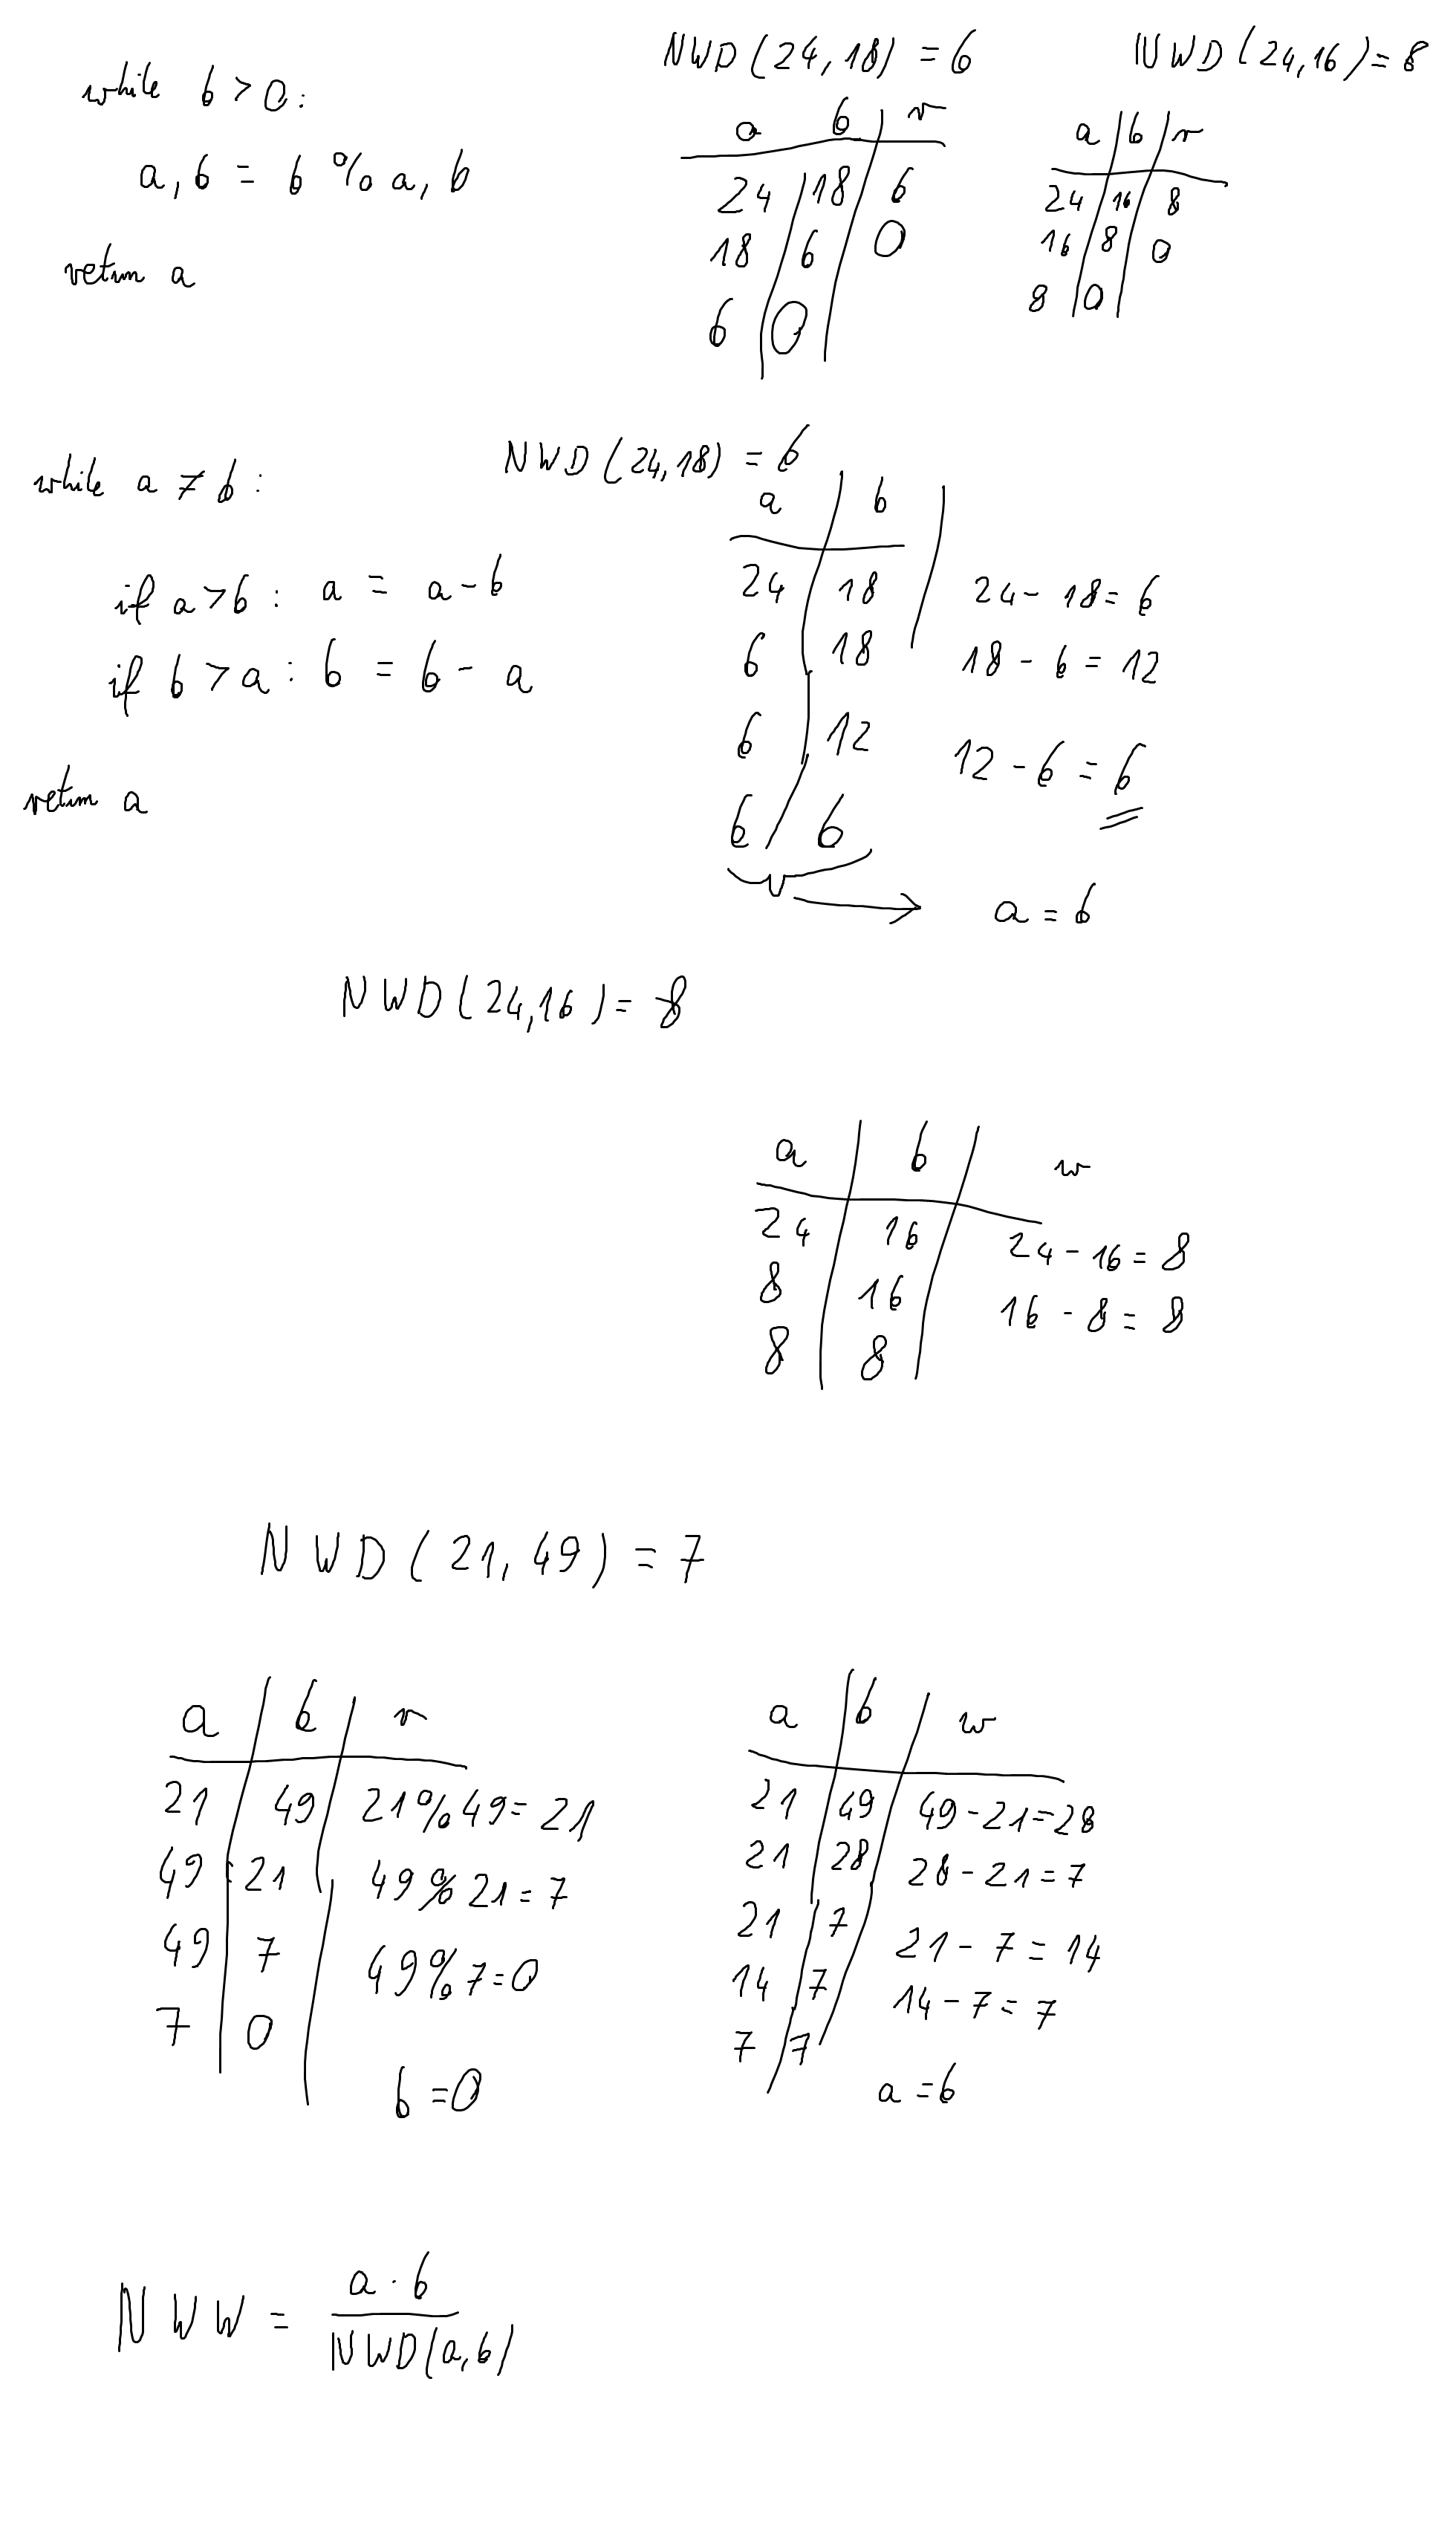 while b > 0 :
a, b = b % a, b
return a
NWD (24, 18) = 6
a b r
24 18 6
18 6 0
6 0
NWD (24, 16) = 8
a b r
24 16 8
16 8 0
8 0
while a ≠ b :
if a > b : a = a - b
if b > a : b = b - a
return a
NWD (24, 18) = 6
a b
24 18 24 - 18 = 6
6 18 18 - 6 = 12
6 12 12 - 6 = 6
6 6
a = b
NWD (24, 16) = 8
a b w
24 16 24 - 16 = 8
8 16 16 - 8 = 8
8 8
NWD (21, 49) = 7
a b r
21 49 21 % 49 = 21
49 21 49 % 21 = 7
49 7 49 % 7 = 0
7 0
b = 0
a b w
21 49 49 - 21 = 28
21 28 28 - 21 = 7
21 7 21 - 7 = 14
14 7 14 - 7 = 7
7 7
a = b
NWW = a · b
NWD (a, b)